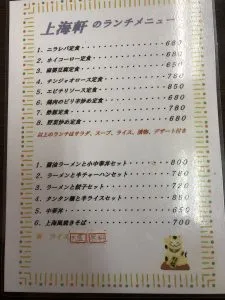 上海軒 のランチメニュー
1. ニラレバ定食・・・・・・・・・・・680
2. ホイコーロー定食・・・・・・・・・680
3. 麻婆豆腐定食・・・・・・・・・・・650
4. チンジャオロース定食・・・・・・・780
5. エビチリソース定食・・・・・・・・850
6. 鶏肉のピリ辛炒め定食・・・・・・・680
7. 酢豚定食・・・・・・・・・・・・・780
8. 野菜炒め定食・・・・・・・・・・・680
以上のランチはサラダ、スープ、ライス、漬物、デザート付き
1. 醤油ラーメンと小中華丼セット・・・・・800
2. ラーメンと半チャーハンセット・・・・・760
3. ラーメンと餃子セット・・・・・・・・・720
4. タンタン麺と半ライスセット・・・・・・850
5. 中華丼・・・・・・・・・・・・・・・・650
6. 上海風焼きそば・・・・・・・・・・・・700
ライス 大盛 無料